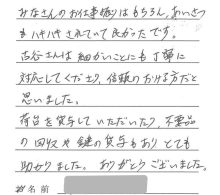 みなさんのお仕事振りはもちろん、あいさつ
もハキハキされていて良かったです。
古谷さんは細かいことにも丁寧に
対応してくださり、信頼のおける方だと
思いました。
荷台を貸与していただいたり、不要品
の回収や鍵の貸与もあり とても
助かりました。ありがとうございました。
お名前